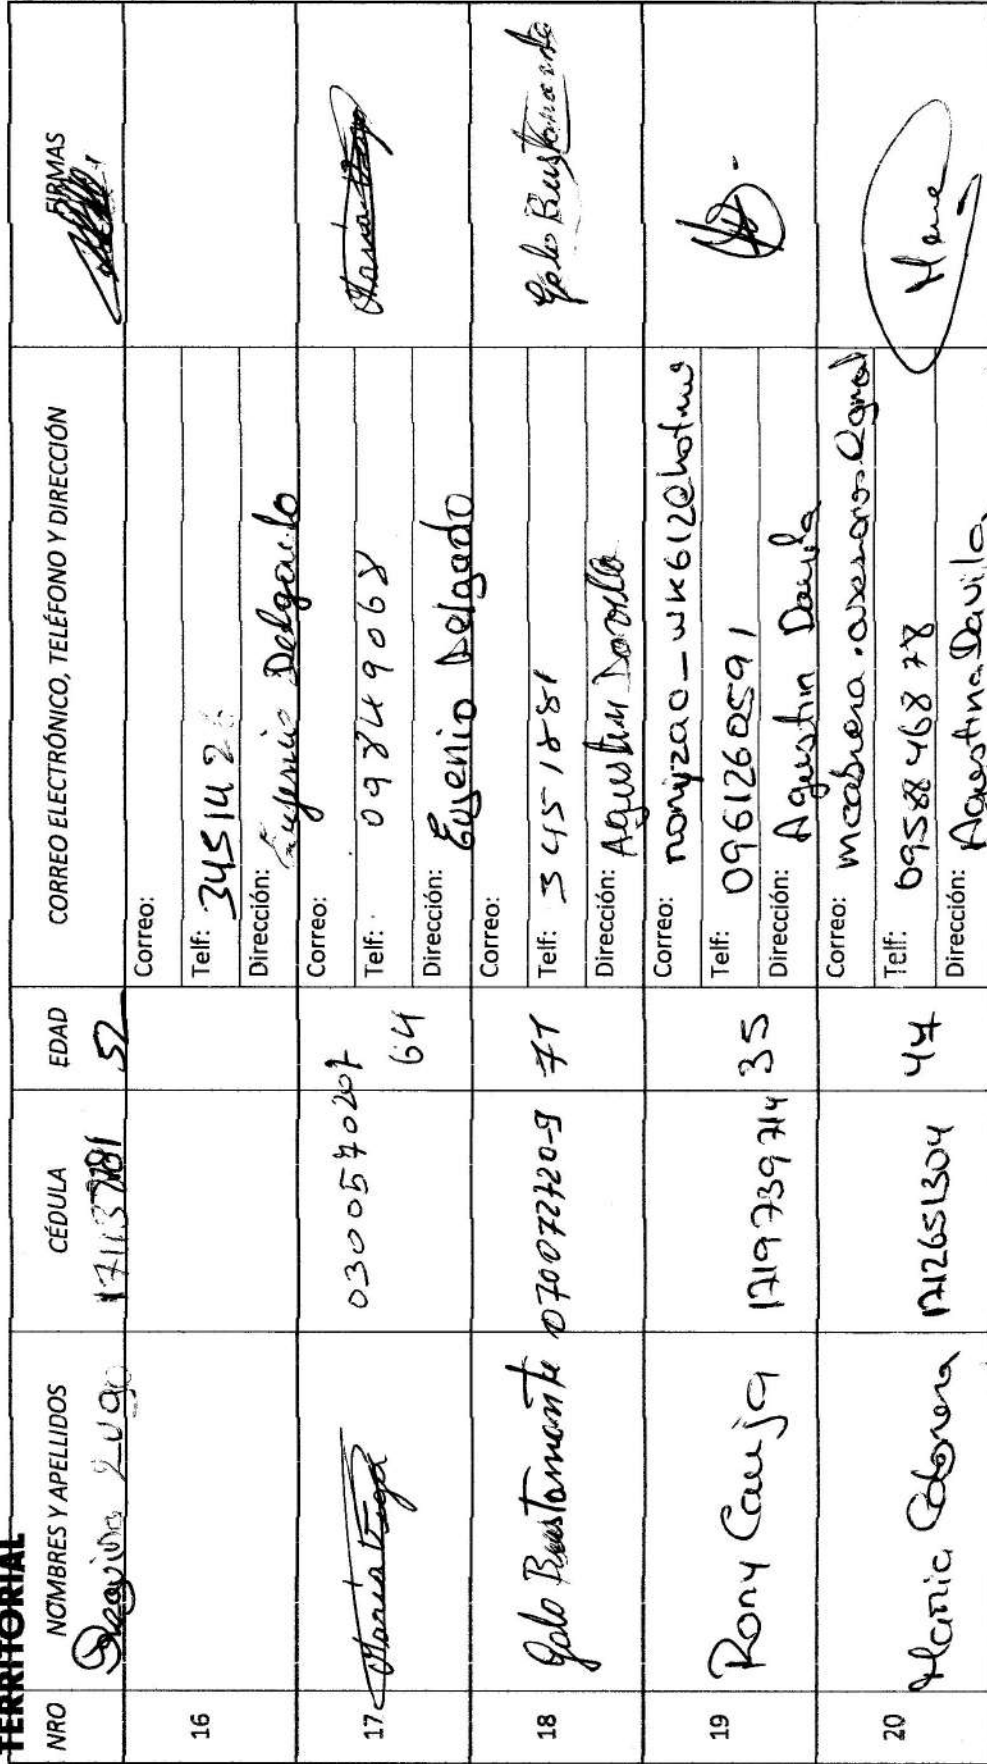 TERRITORIAL
NRO NOMBRES Y APELLIDOS CÉDULA EDAD CORREO ELECTRÓNICO, TELÉFONO Y DIRECCIÓN FIRMAS
52
16
Correo:
Telf: 345142
Dirección: Eugenio Delgado
17 Maria Vega 0300570207 64
Correo:
Telf: 098449068
Dirección: Eugenio Delgado
18 Galo Bustamante 070072720-9 71 Galo Bustamante
Correo:
Telf: 3451881
Dirección: Agustin Davila
19 Rony Cauja 1719739714 35
Correo: roniyzao_wk612@hotma
Telf: 0961260591
Dirección: Agustin Davila
20 Maria Cabrera 1712651304 47
Correo: mcabrera.asesorias@gmail
Telf: 0958846878
Dirección: Agustina Davila